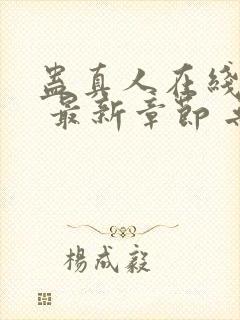 蛊真人在线
最新章節
楊成毅